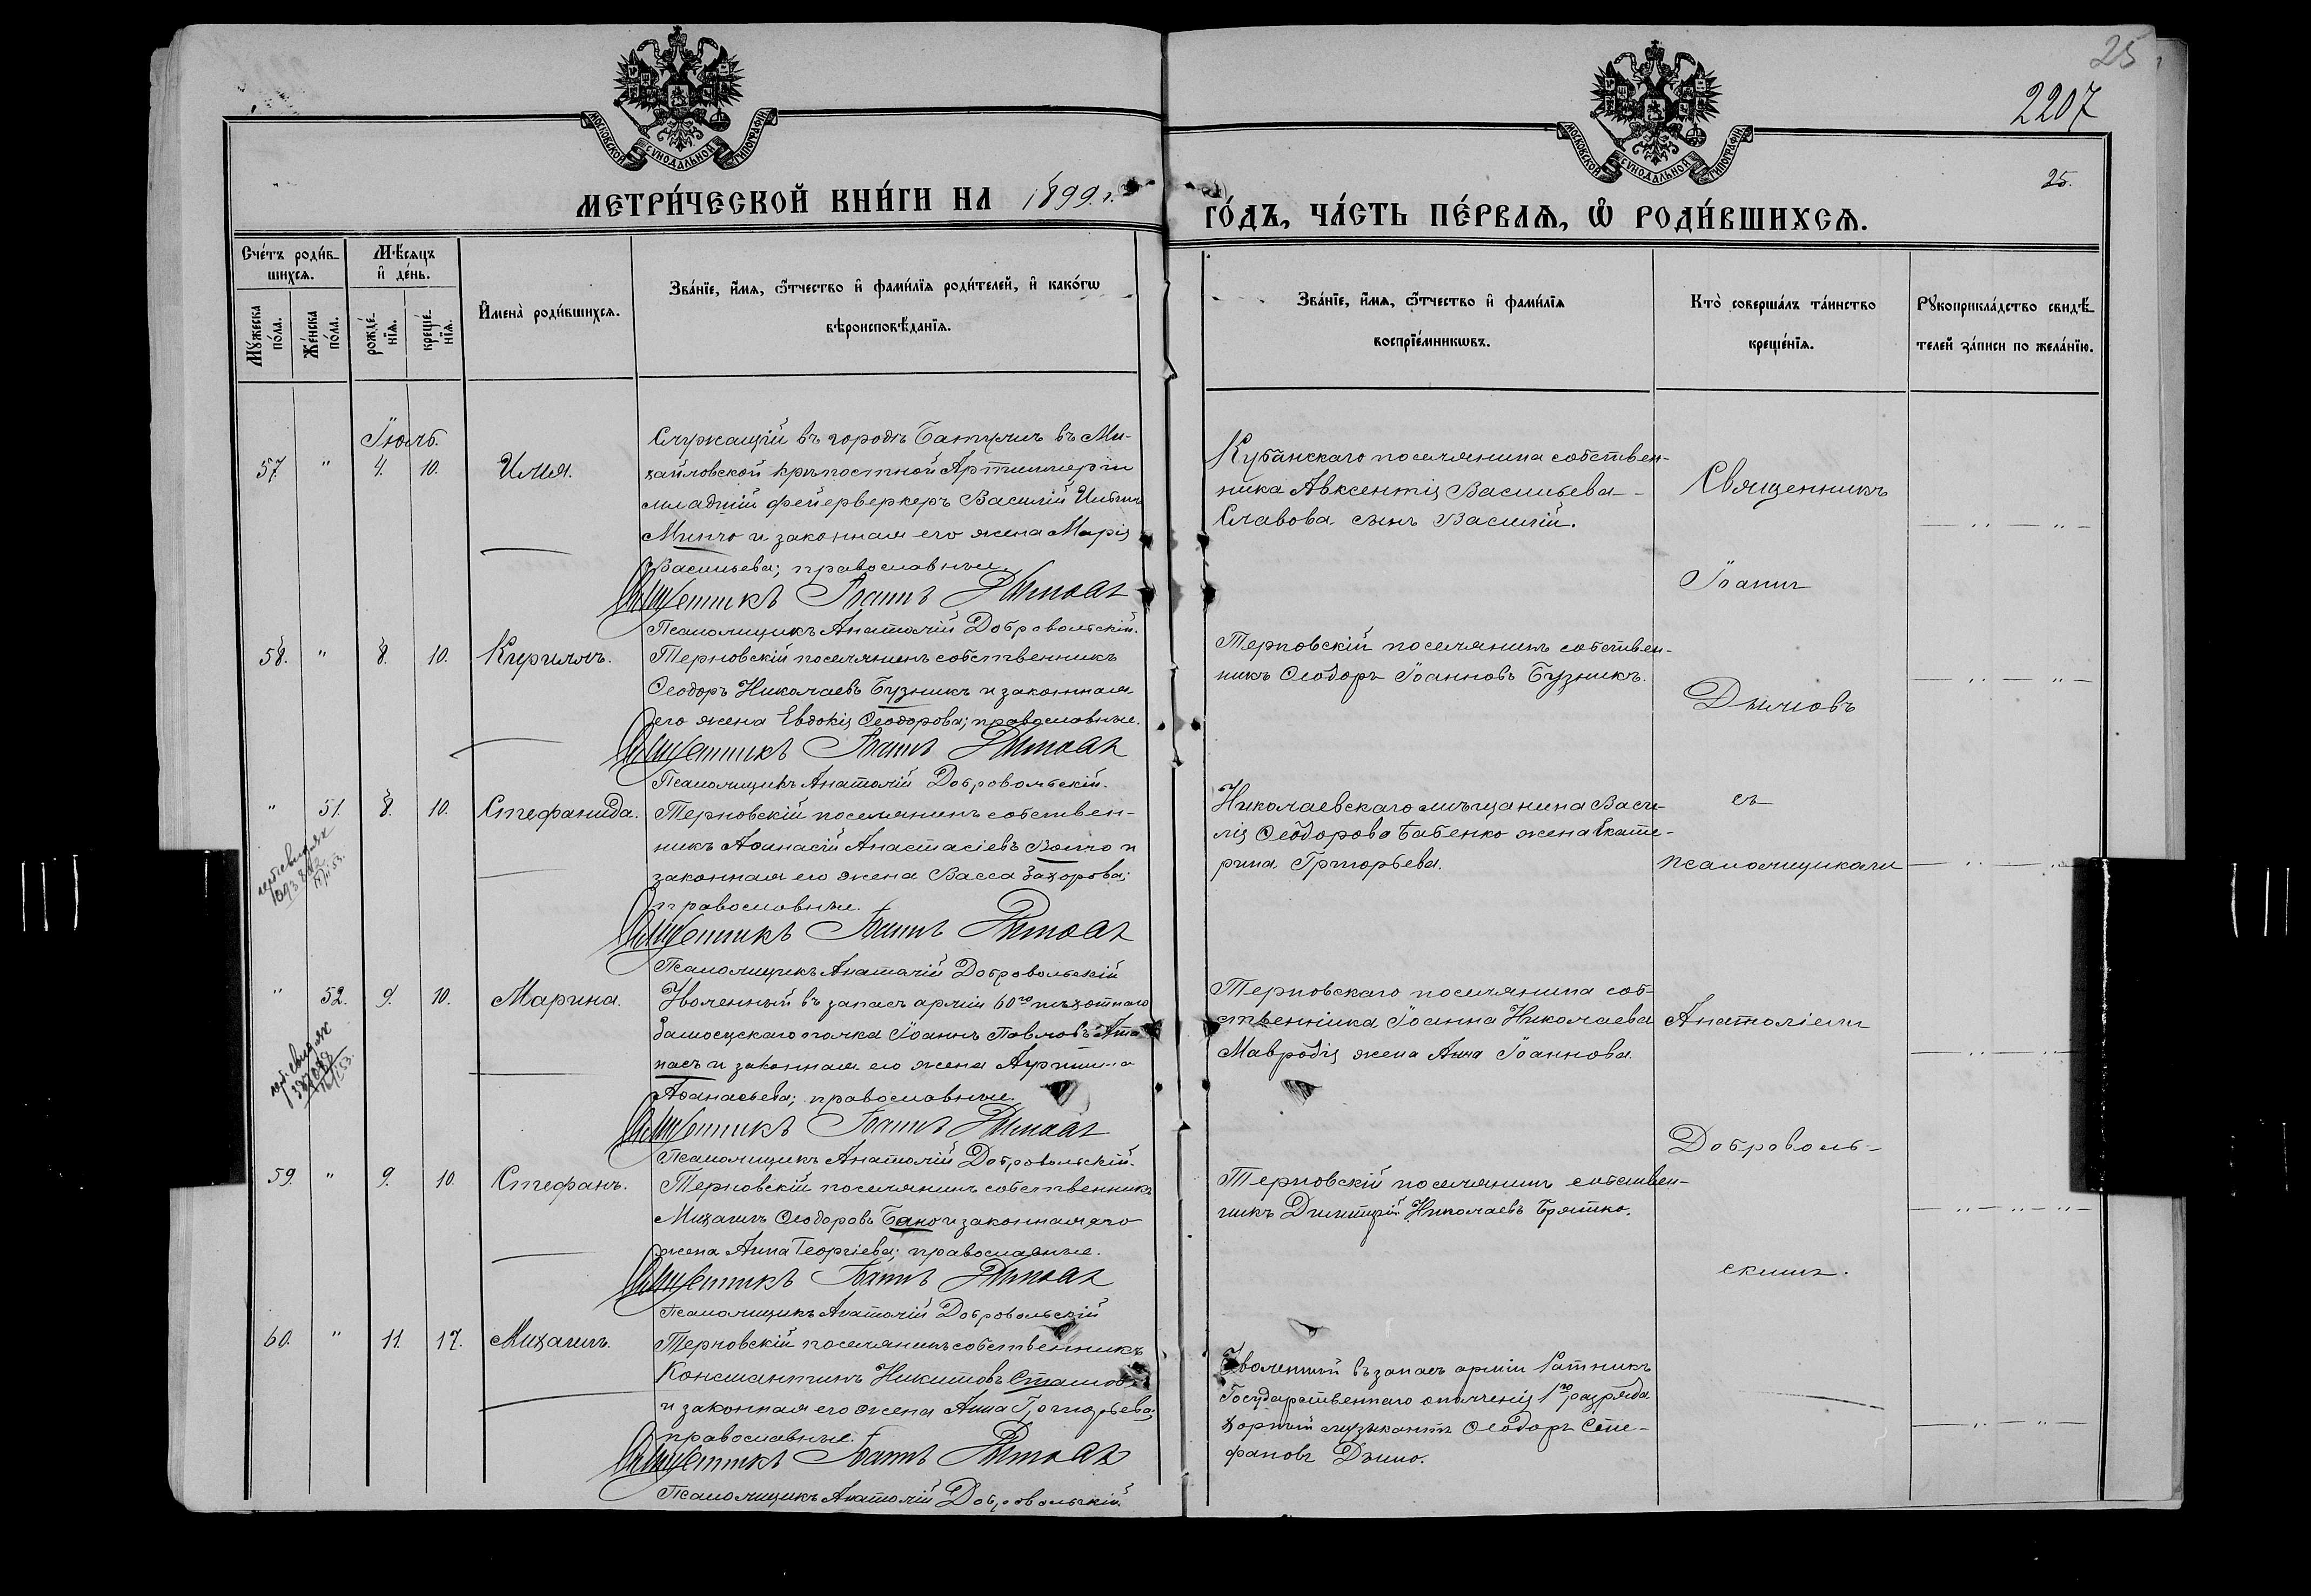 25
2207
25.
МОСКОВСКОЙ СУНОДАЛЬНОЙ ТИПОГРАФІИ
МОСКОВСКОЙ СУНОДАЛЬНОЙ ТИПОГРАФІИ
МЕТРИ́ЧЕСКОЙ КНИ́ГИ НА 1899 г.
ГО́ДЪ, ЧА́СТЬ ПЕ́РВАѦ, Ѽ РОДИ́ВШИХСѦ.
Сче́тъ роди́в-
шихсѧ.
Мѣ́сѧцъ
и҆ де́нь.
Мꙋ́жеска
по́ла.
Же́нска
по́ла.
рожде́-
нїѧ.
креще́-
нїѧ.
И҆мена̀ роди́вшихсѧ.
Зва́нїе, и҆́мѧ, ѻ҆́тчество и҆ фами́лїѧ роди́телей, и҆ како́гѡ
вѣроисповѣ́данїѧ.
Зва́нїе, и҆́мѧ, ѻ҆́тчество и҆ фами́лїѧ
воспрїе́мникѡвъ.
Кто̀ соверша́лъ та́инство
креще́нїѧ.
Рꙋкоприкла́дство свидѣ́-
телей за́писи по жела́нїю.
Іюль.
57. " 4. 10. Илія.
Служащій въ городѣ Батумѣ въ Ми-
хайловской крѣпостной Артиллеріи
младшій фейерверкеръ Василій Ильинъ
Минчо и законная его жена Марія
Васильева; православные.
Священникъ Іоаннъ Дымовъ
Псаломщикъ Анатолій Добровольскій.
Кубанскаго поселянина собствен-
ника Авксентія Васильева
Славова сынъ Василій.
Священникъ
Іоаннъ
Дымовъ
съ
псаломщикомъ
Анатоліемъ
Доброволь-
скимъ.
58. " 8. 10. Кириллъ.
Терновскій поселянинъ собственникъ
Ѳеодоръ Николаевъ Бузникъ и законная
его жена Евдокія Ѳеодорова; православные.
Священникъ Іоаннъ Дымовъ
Псаломщикъ Анатолій Добровольскій.
Терновскій поселянинъ собствен-
никъ Ѳеодоръ Іоанновъ Бузникъ.
" 51. 8. 10. Стефанида.
Терновскій поселянинъ собствен-
никъ Аѳанасій Анастасіевъ и
законная его жена Васса Захорова;
православные.
Священникъ Іоаннъ Дымовъ
Псаломщикъ Анатолій Добровольскій
Николаевскаго мѣщанина Васи-
лія Ѳеодорова Бабенко жена Екате-
рина Григорьева.
" 52. 9. 10. Марина.
Уволенный въ запасъ арміи 60го пѣхотнаго
Замосцскаго полка Іоаннъ Павловъ Ата-
насъ и законная его жена
Аѳанасьева; православные.
Священникъ Іоаннъ Дымовъ
Псаломщикъ Анатолій Добровольскій.
Терновскаго поселянина соб-
ственника Іоанна Николаева
Мавродія жена Анна Іоаннова.
59. " 9. 10. Стефанъ.
Терновскій поселянинъ собственникъ
Михаилъ Ѳеодоровъ Бано и законная его
жена Анна Георгіева; православные.
Священникъ Іоаннъ Дымовъ
Псаломщикъ Анатолій Добровольскій
Терновскій поселянинъ собствен-
никъ Димитрій Николаевъ Брятко.
60. " 11. 17. Михаилъ.
Терновскій поселянинъ собственникъ
Константинъ Никитовъ Стамов
и законная его жена Анна Григорьева;
православные.
Священникъ Іоаннъ Дымовъ
Псаломщикъ Анатолій Добровольскій.
Уволенный въ запасъ арміи Ратникъ
Государственнаго ополченія 1го разряда
хорный музыкантъ Ѳеодоръ Сте-
фановъ Дымо.